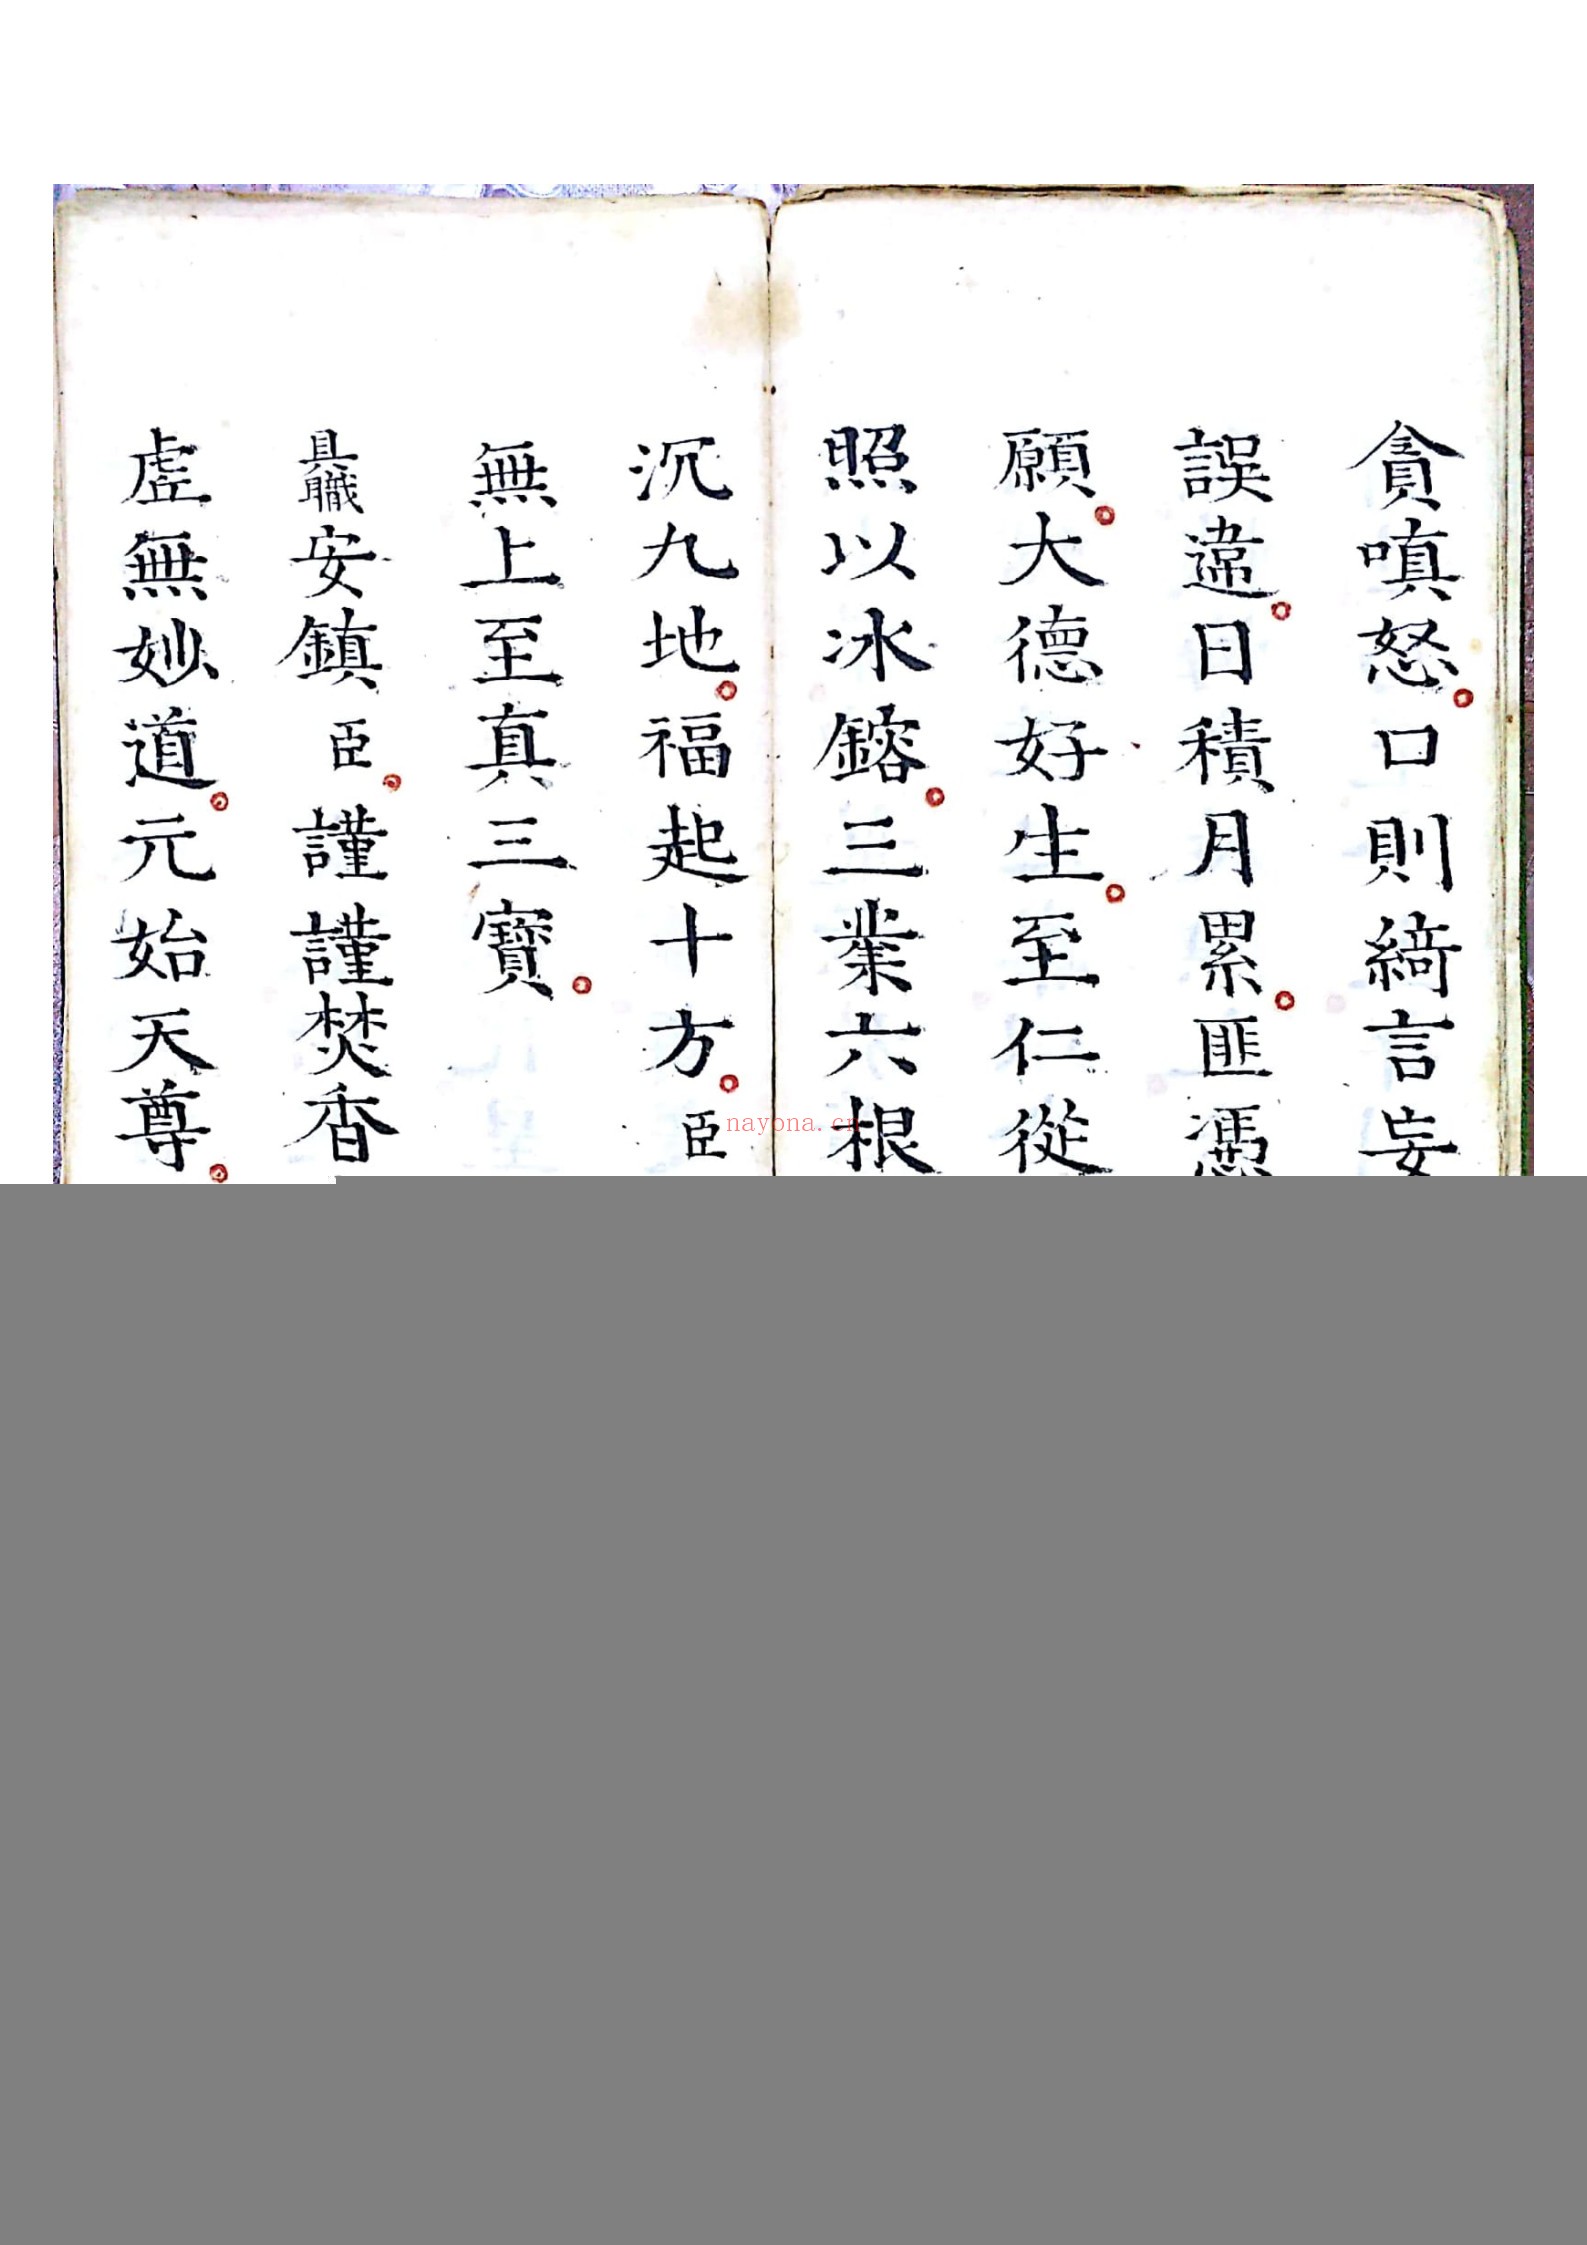 貪嗔怒口則綺言妄
誤違日積月累匪憑
願大德好生至仁從
照以冰鎔三業六根
沉九地福起十方臣
無上至真三寶
具職安鎮臣謹謹焚香
虛無妙道元始天尊
nayona.cn